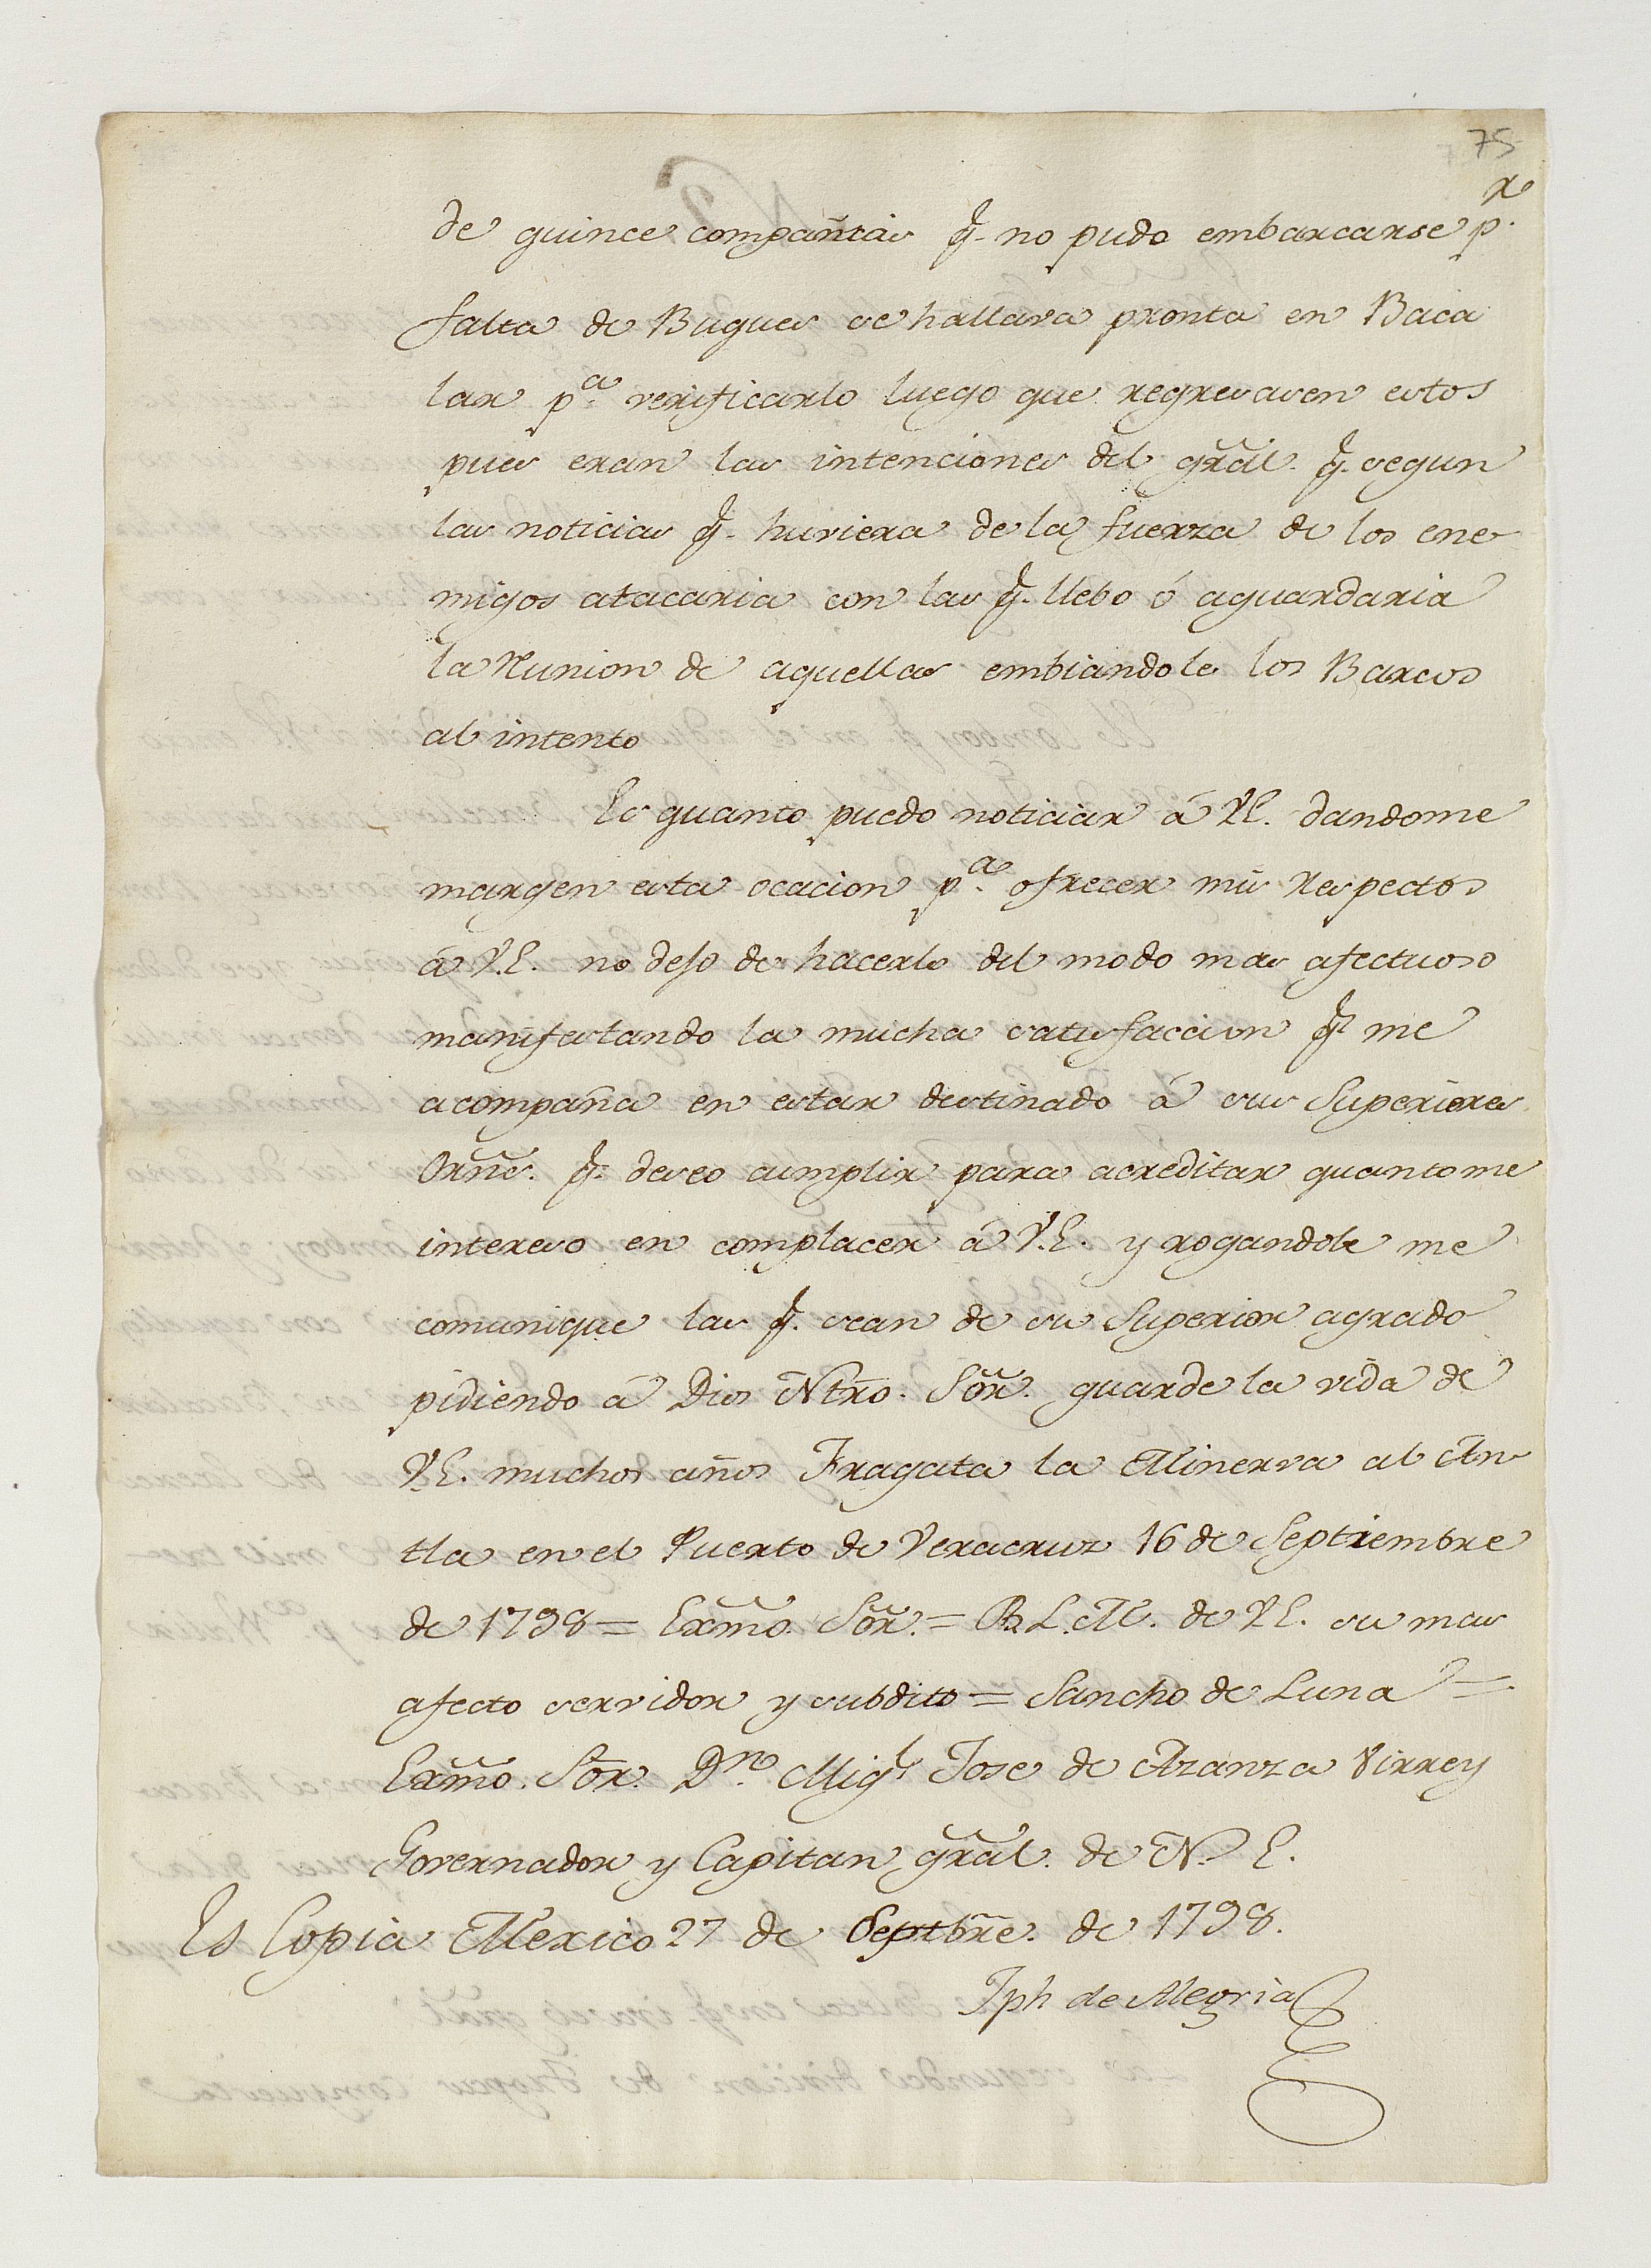 75
de quince compañias q.e no pudo embarcarse p.r
falta de Buques se hallava pronta en Baca
lar p.a verificarlo luego que regresasen estos
pues eran las intenciones del grãl. q.e segun
las noticias q.e huviera de la fuerza de los ene
migos atacaria con las q.e llebo ó aguardaria
la Runion de aquellas embiandole los Barcos
al intento
Es quanto puedo noticiar á V.E. dandome
margen esta ocacion p.a ofrecer mis Respectos
á V.E. no dejo de hacerlo del modo mas afectuoso
manifestando la mucha satisfaccion q.e me
acompaña en estar destinado á sus Superiores
Orñs. q.e deseo cumplir para acreditar quanto me
intereso en complacer á V.E. y rogandole me
comunique las q.e sean de su Superior agrado
pidiendo á Dios Ntro. Sõr. guarde la vida de
V.E. muchos años Fragata la Minerva al An
tla en el Puerto de Veracruz 16 de Septiembre
de 1798 = Exmo. Sõr. = B.L.M. de V.E. su mas
afecto servidor y subdito = Sancho de Luna =
Exmo. Sõr. D.n Mig.l Jose de Azanza Virrey
Governador y Capitan grãl. de N. E.
Es Copia Mexico 27 de Septbre. de 1798.
Jph de Alegria